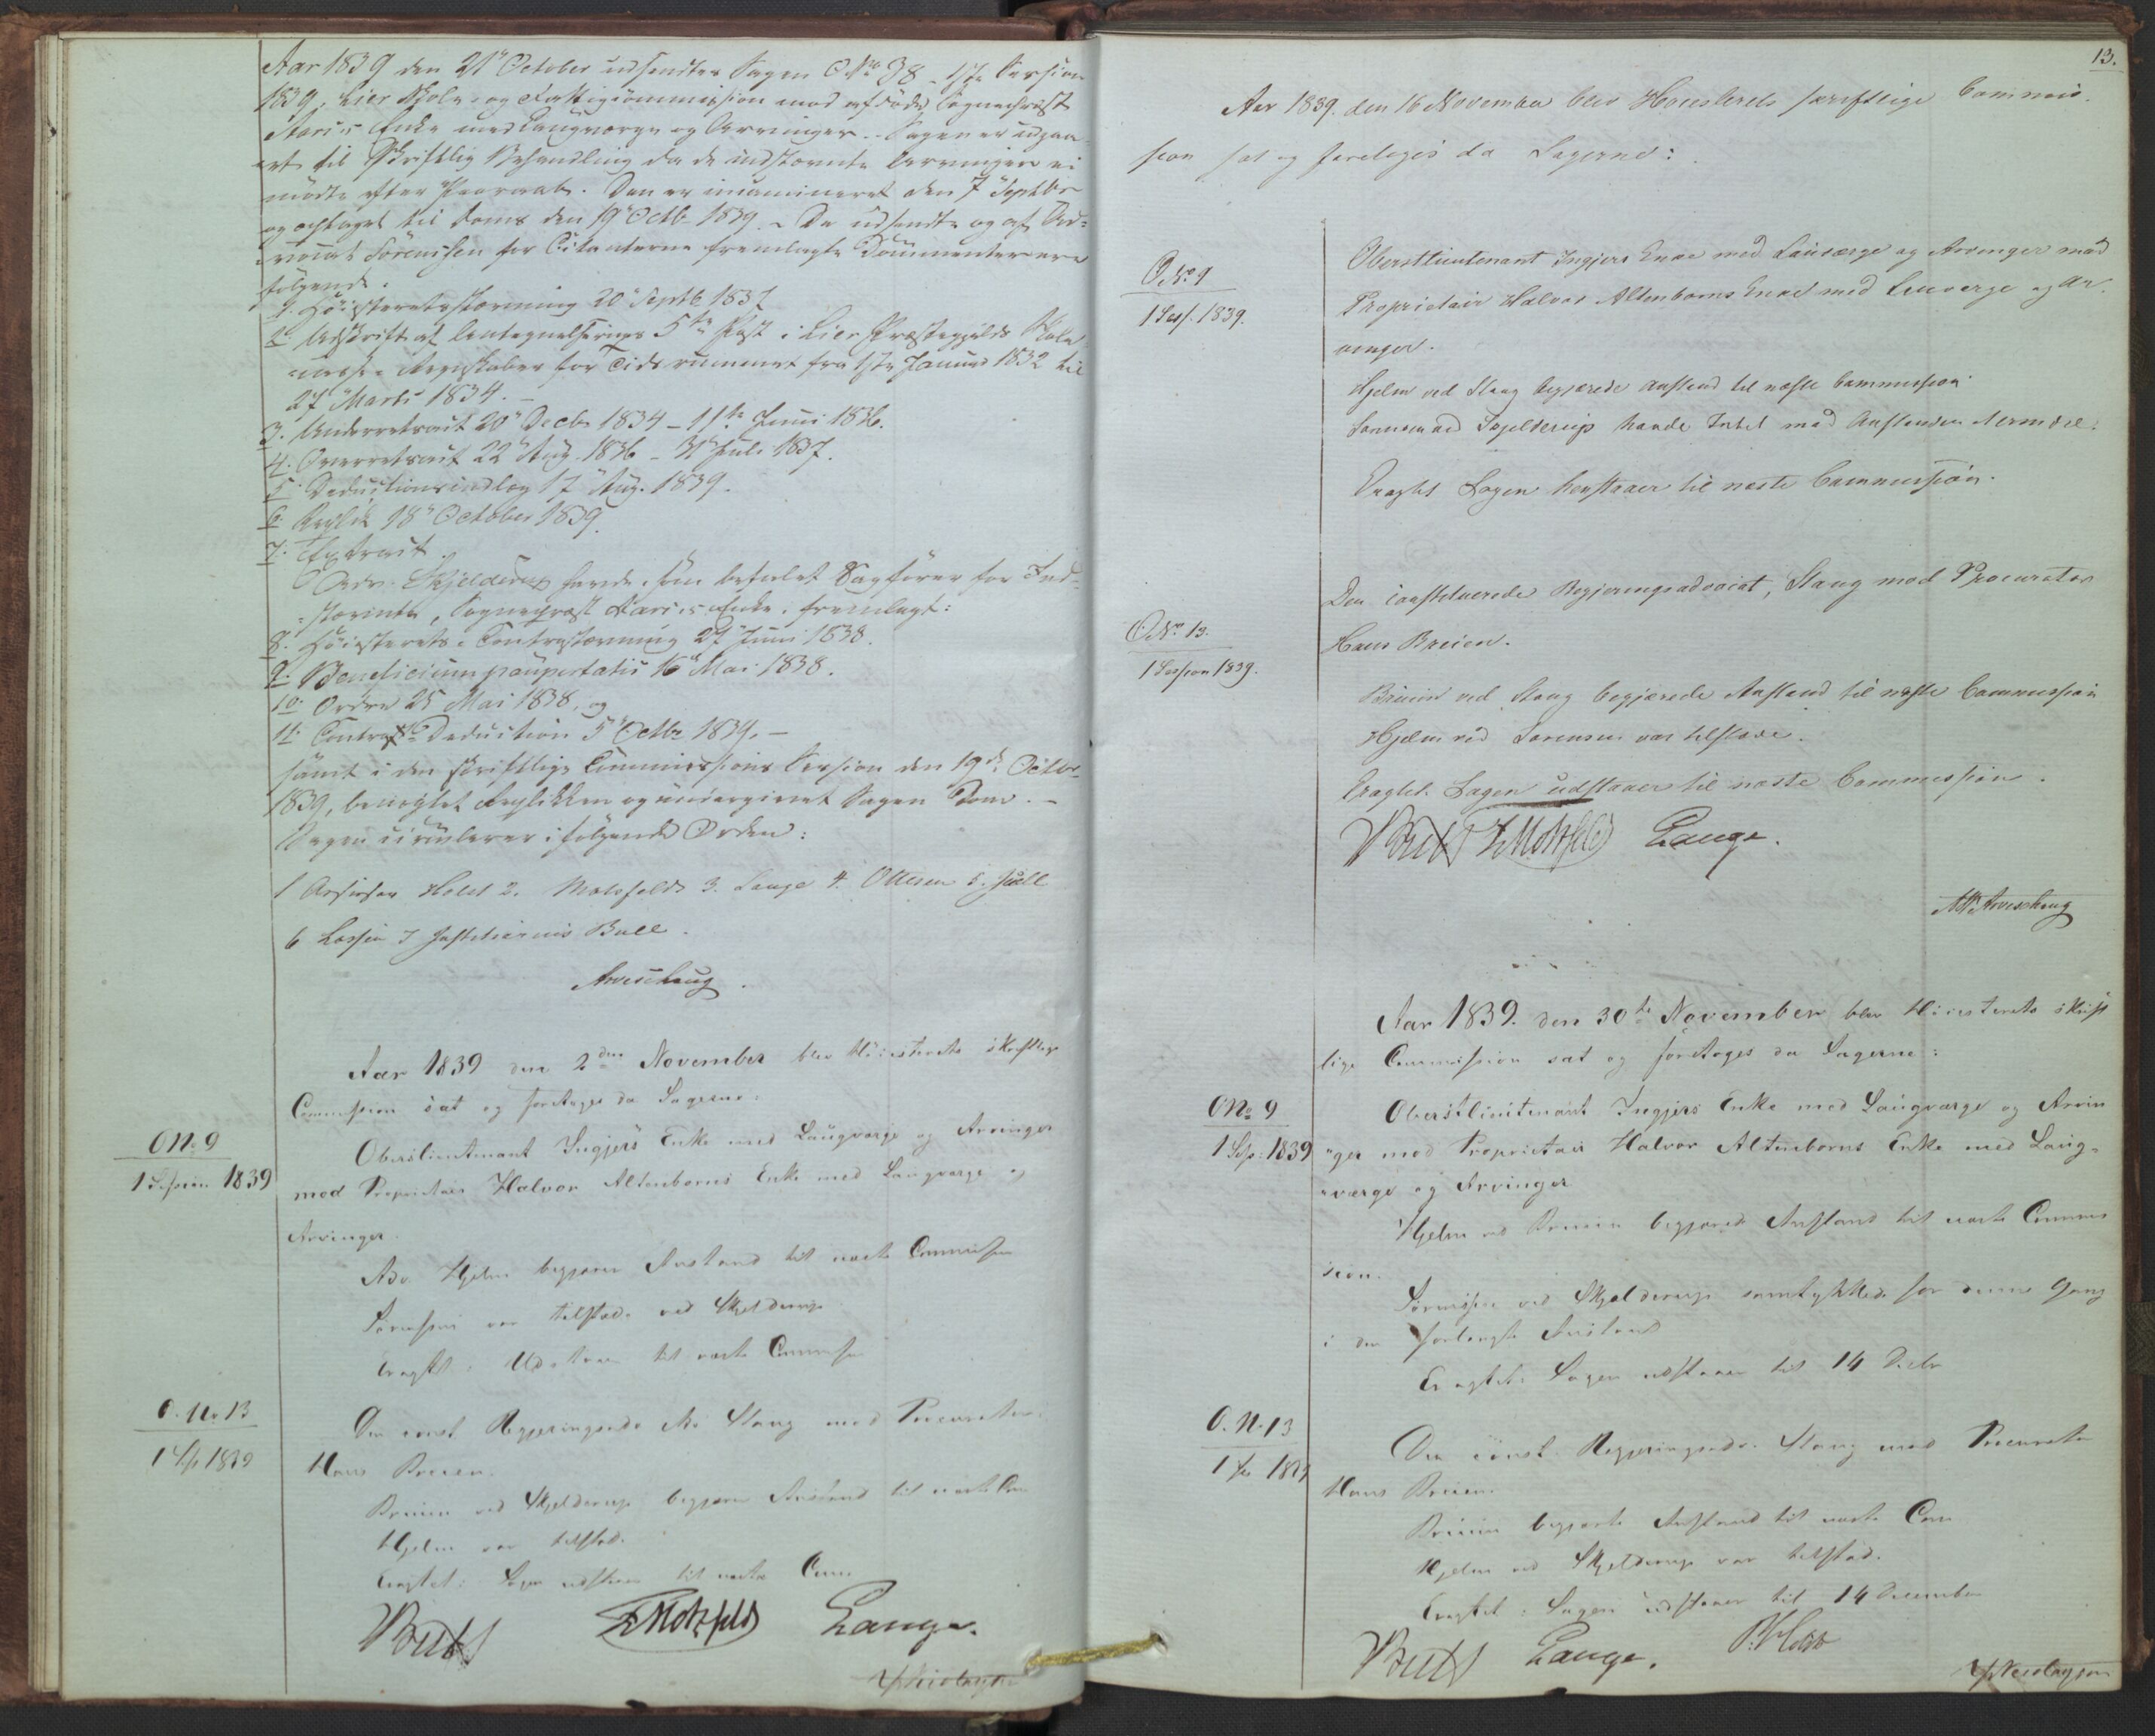 Aar 1839 den 21 October udsendtes Sagen O. No 38 - 1ste Session
1839, Lier Skole- og Fattigcommission mod afdöde Sognepræst
Enke med Laugværge og Arvinger. Sagen er udgaa-
et til Skriftlig Behandling da de indstævnte Arvinger ei
mödte efter Paaraab. Den er incamineret den 7 Septbr
og optaget til Doms den 19 Octb 1839. - De udsendte og af Ad-
vocat Sörenssen for Citanterne fremlagte Documenter ere
fölgende:
1. Höiesteretsstævning 20 Septb 1837
2. Udskrift af Antegnelsernes 5te Post i Lier Præstegjelds Skole-
Regnskaber for Tidsrummet fra 1ste Januar 1832 til
27 Marts 1834. -
3. Underretsact 20 Decbr 1834 - 11te Juni 1836.
4. Overretsact 22 Aug. 1836 - 31 Juli 1837.
5. Deductionsindlæg 17 Aug. 1839.
6. Replik 18 October 1839.
7. Extract.
Adv. Skjelderup havde, som befalet Sagförer for Ind-
stævnte, Sognepræst Enke, fremlagt:
8. Höiesterets Contrastævning 27 Juni 1838.
9. Beneficium paupertatis 16 Mai 1838.
10. Ordre 25 Mai 1838, og
11. Contra Deduction 5 Octbr 1839. -
samt i den skriftlige Commissions Session den 19de Octbr
1839, benegtet Replikken og undergivet Sagen Dom. -
Sagen circulerer i fölgende Orden:
1 Assessor Holst 2. Motzfeldt 3. Lange 4. Ottesen 5.
6 Lasson 7 Justitiarius Bull.
Aveschoug.
Aar 1839 den 2den November blev Höiesterets skriftlige
Commission sat og foretoges da Sagerne:
O No 9
1 Session 1839
Oberstlieutenant Ingjers Enke med Laugværge og Arvinger
mod Proprietair Halvor Altenborns Enke med Laugværge og
Arvinger.
Adv. Hjelm begjærer Anstand til næste Commission
Sörenssen var tilstede ved Skjelderup
Eragtet: Udstaaer til næste Commission
O. No 13
1 Ss 1839
Den const. Regjeringsadv. Stang mod Procurator
Hans Breien.
Breien ved Skjelderup begjærer Anstand til næste Com
Hjelm var tilstede.
Eragtet: Sagen udstaaer til næste Com
Bull Motzfeldt Lange.
Nicolaysen
13.
Aar 1839. den 16 November blev Höiesterets skriftlige Commis-
sion sat og foretoges da Sagerne:
O No 9
1 Sess. 1839.
Oberstlieutenant Ingjers Enke med Lauværge og Arvinger mod
Proprietair Halvor Altenborns Enke med Lauværge og Ar-
vinger.
Hjelm ved Stang begjærede Anstand til næste Commission
Sörensen ved Skjelderup havde Intet mod Anstanden at erindre.
Eragtet Sagen henstaaer til næste Commission.
O No. 13.
1 Session 1839.
Den constituerede Regjeringsadvocat, Stang mod Procurator
Hans Breien.
Breien ved Stang begjærede Anstand til næste Commission
Hjelm ved Sörensen var tilstede.
Eragtet. Sagen udstaaer til næste Commission.
Bull Motzfeldt Lange.
Aveschoug
Aar 1839. den 30te November blev Höiesterets skrift
lige Commission sat og foretoges da Sagerne:
O No 9
1 Ses: 1839
Oberstlieutenant Ingjers Enke med Laugværge og Arvin
ger mod Proprietair Halvor Altenborns Enke med Laug-
værge og Arvinger
Hjelm ved Breien begjærede Anstand til næste Commis
sion.
Sörenssen ved Skjelderup samtykkede for denne Gang
i den forlangte Anstand
Eragtet: Sagen udstaaer til 14 Decbr
O. N. 13
1 Ses 1839
Den const. Regjeringsadv. Stang mod Procurator
Hans Breien.
Breien begjærte Anstand til næste Com
Hjelm ved Skjelderup var tilstede.
Eragtet: Sagen udstaaer til 14 December
Bull Lange. P. Holst
Nicolaysen